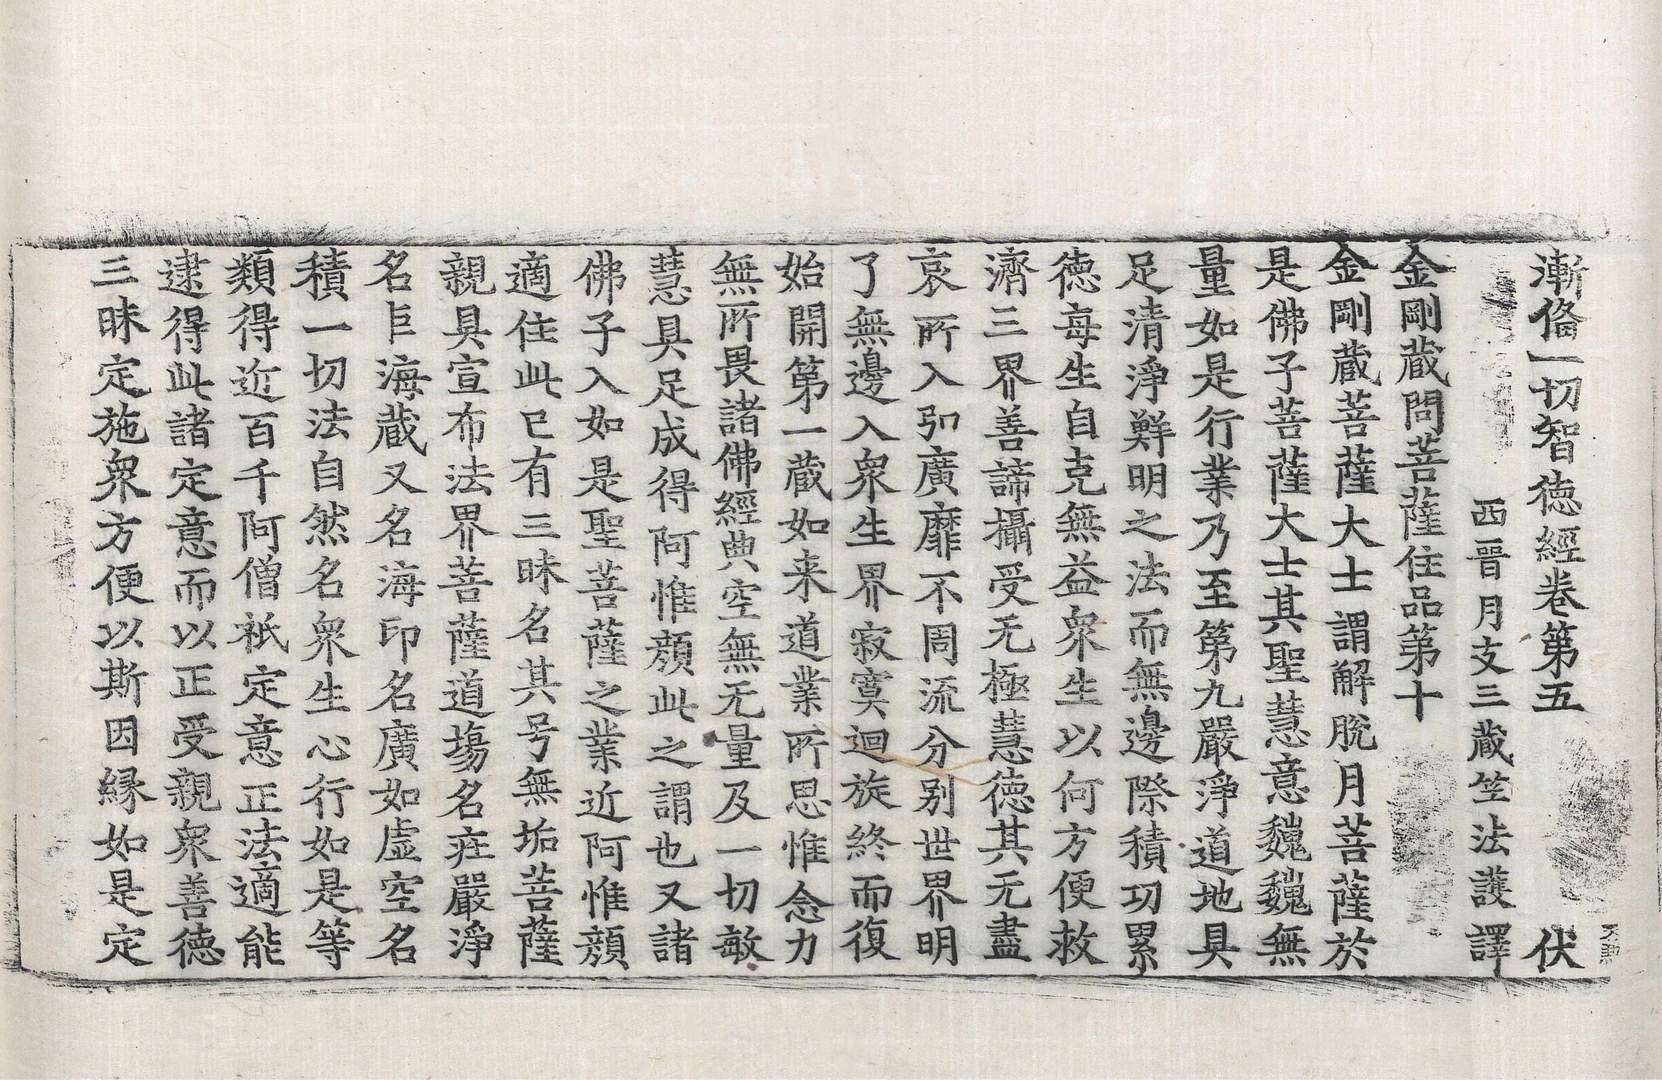 漸俻一切智德經卷第五　伏
西晉月支三藏竺法護譯
金剛藏問菩薩住品第十
金剛藏菩薩大士謂解脫月菩薩於
是佛子菩薩大士其聖慧意巍巍無
量如是行業乃至第九嚴淨道地具
足清淨鮮明之法而無邊際積功累
德每生自克無益衆生以何方便救
濟三界善諦攝受无極慧德其无盡
哀所入弘廣靡不周流分别世界明
了無邊入衆生界寂寞迴旋終而復
始開第一藏如来道業所思惟念力
無所畏諸佛經典空無无量及一切敏
慧具足成得阿惟顔此之謂也又諸
佛子入如是聖菩薩之業近阿惟顔
適住此已有三昧名其号無垢菩薩
親具宣布法界菩薩道場名莊嚴淨
名巨海藏又名海印名廣如虛空名
積一切法自然名衆生心行如是等
類得近百千阿僧祇定意正法適能
逮得此諸定意而以正受親衆善德
三昧定施衆方便以斯因緣如是定